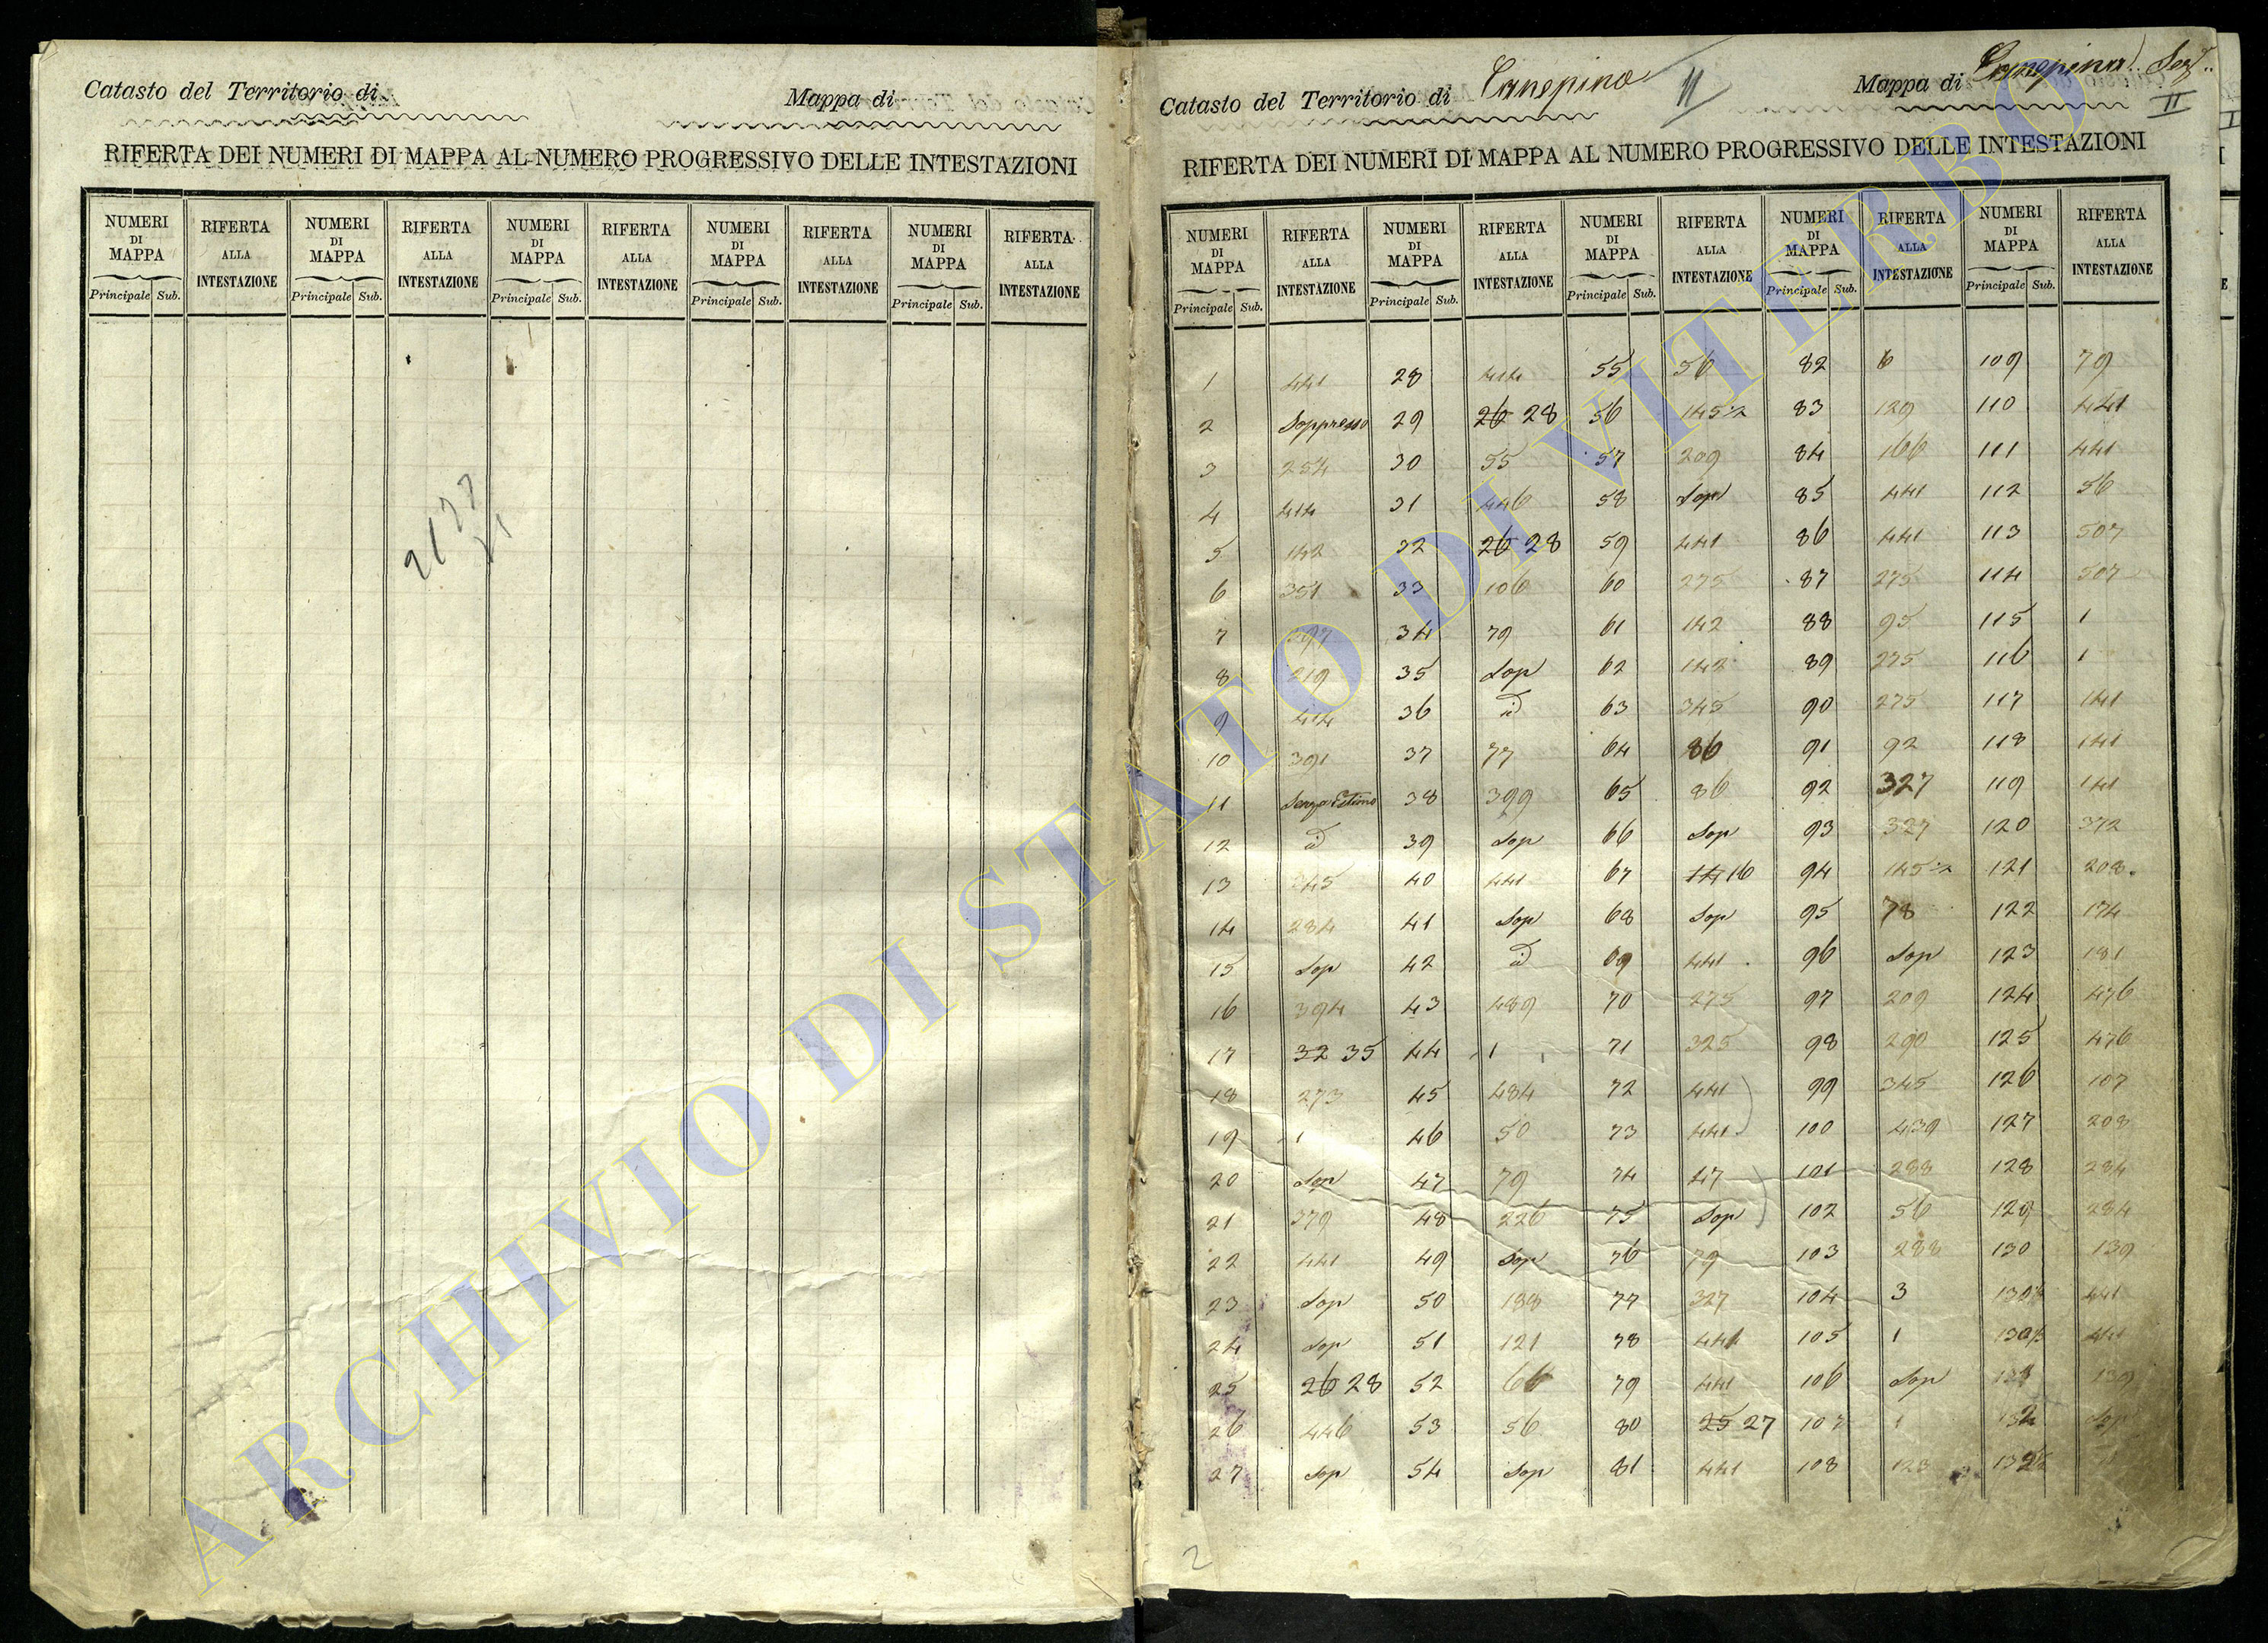 Catasto del Territorio di Mappa di
RIFERTA DEI NUMERI DI MAPPA AL NUMERO PROGRESSIVO DELLE INTESTAZIONI
NUMERI DI MAPPA RIFERTA ALLA INTESTAZIONE NUMERI DI MAPPA RIFERTA ALLA INTESTAZIONE NUMERI DI MAPPA RIFERTA ALLA INTESTAZIONE NUMERI DI MAPPA RIFERTA ALLA INTESTAZIONE NUMERI DI MAPPA RIFERTA ALLA INTESTAZIONE
Principale Sub. Principale Sub. Principale Sub. Principale Sub. Principale Sub.
Catasto del Territorio di Canepina II Mappa di Canepina Sez. II
RIFERTA DEI NUMERI DI MAPPA AL NUMERO PROGRESSIVO DELLE INTESTAZIONI
NUMERI DI MAPPA RIFERTA ALLA INTESTAZIONE NUMERI DI MAPPA RIFERTA ALLA INTESTAZIONE NUMERI DI MAPPA RIFERTA ALLA INTESTAZIONE NUMERI DI MAPPA RIFERTA ALLA INTESTAZIONE NUMERI DI MAPPA RIFERTA ALLA INTESTAZIONE
Principale Sub. Principale Sub. Principale Sub. Principale Sub. Principale Sub.
1 441 28 414 55 56 82 6 109 79
2 Soppresso 29 26 28 56 145 2 83 129 110 441
3 254 30 55 57 209 84 166 111 441
4 414 31 446 58 Sop 85 441 112 56
5 142 32 26 28 59 441 86 441 113 507
6 351 33 106 60 275 87 275 114 507
7 397 34 79 61 142 88 95 115 1
8 219 35 Sop 62 142 89 275 116 1
9 414 36 id 63 345 90 275 117 141
10 391 37 77 64 86 91 92 118 141
11 Senza Estimo 38 399 65 86 92 327 119 141
12 id 39 Sop 66 Sop 93 327 120 372
13 345 40 441 67 14 16 94 145 2 121 208
14 284 41 Sop 68 Sop 95 78 122 174
15 Sop 42 id 69 441 96 Sop 123 181
16 394 43 489 70 275 97 209 124 476
17 32 35 44 1 71 325 98 290 125 476
18 273 45 484 72 441 99 345 126 107
19 1 46 50 73 441 100 439 127 208
20 Sop 47 79 74 47 101 288 128 284
21 379 48 226 75 Sop 102 56 129 284
22 441 49 Sop 76 79 103 288 130 139
23 Sop 50 188 77 327 104 3 441
24 Sop 51 121 78 441 105 1 441
25 26 28 52 66 79 441 106 Sop 139
26 446 53 56 80 25 27 107 1 Sop
27 Sop 54 Sop 81 441 108 123
2
ARCHIVIO DI STATO DI VITERBO